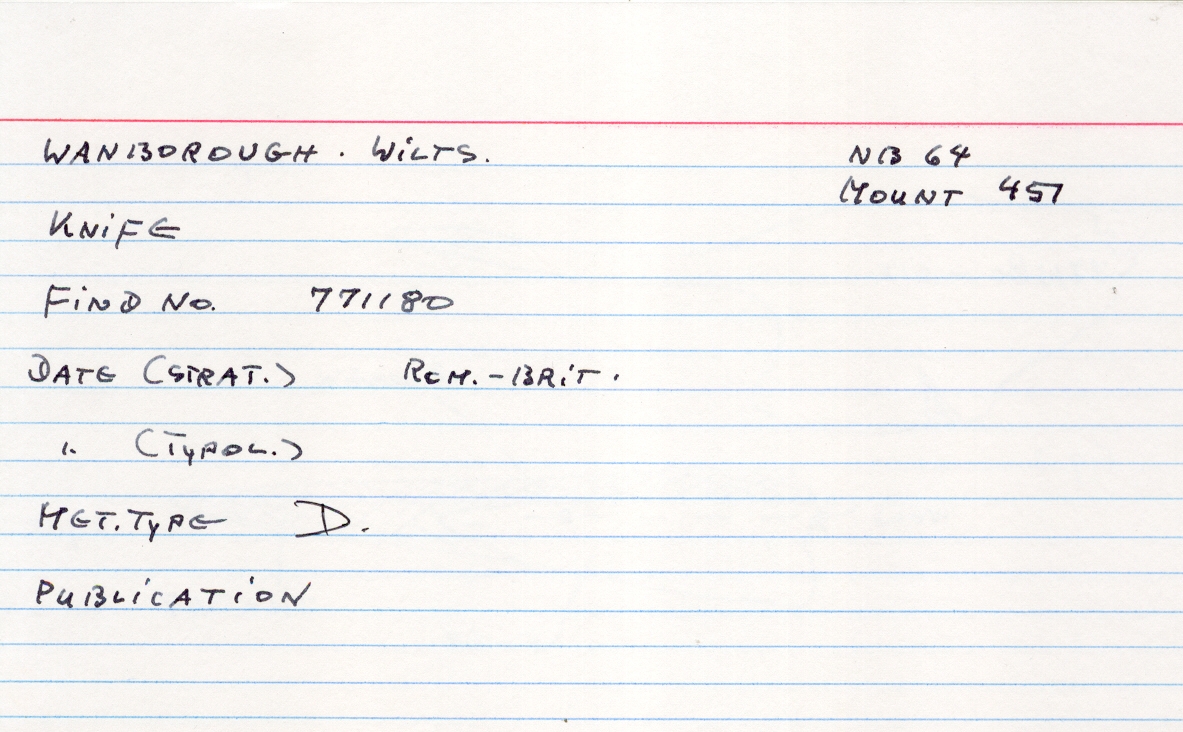 WANBOROUGH. WILTS.
NB 64
MOUNT 457
KNIFE
FIND NO. 771180
DATE (STRAT.) ROM.-BRIT.
" (TYPOL.)
MET. TYPE D.
PUBLICATION